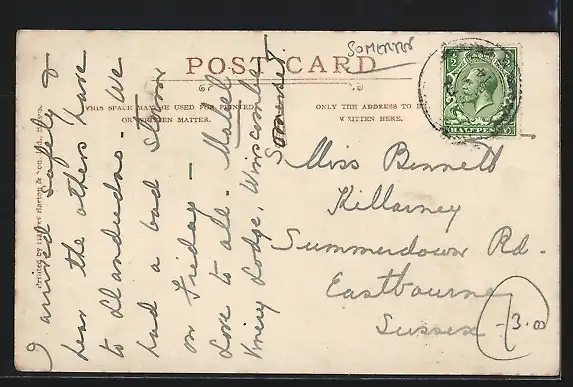 SOMERSET
POST CARD
THIS SPACE MAY BE USED FOR PRINTED
OR WRITTEN MATTER.
ONLY THE ADDRESS TO BE
WRITTEN HERE.
HALFPENNY
I arrived safely &
hear the others have
to Llandudno. We
had a bad storm
on Friday —
Love to all. Mabel
Lodge, Winscombe
Somerset.
Miss Bennett
Killarney
Summerdown Rd.
Eastbourne
Sussex
-3.00
Printed by